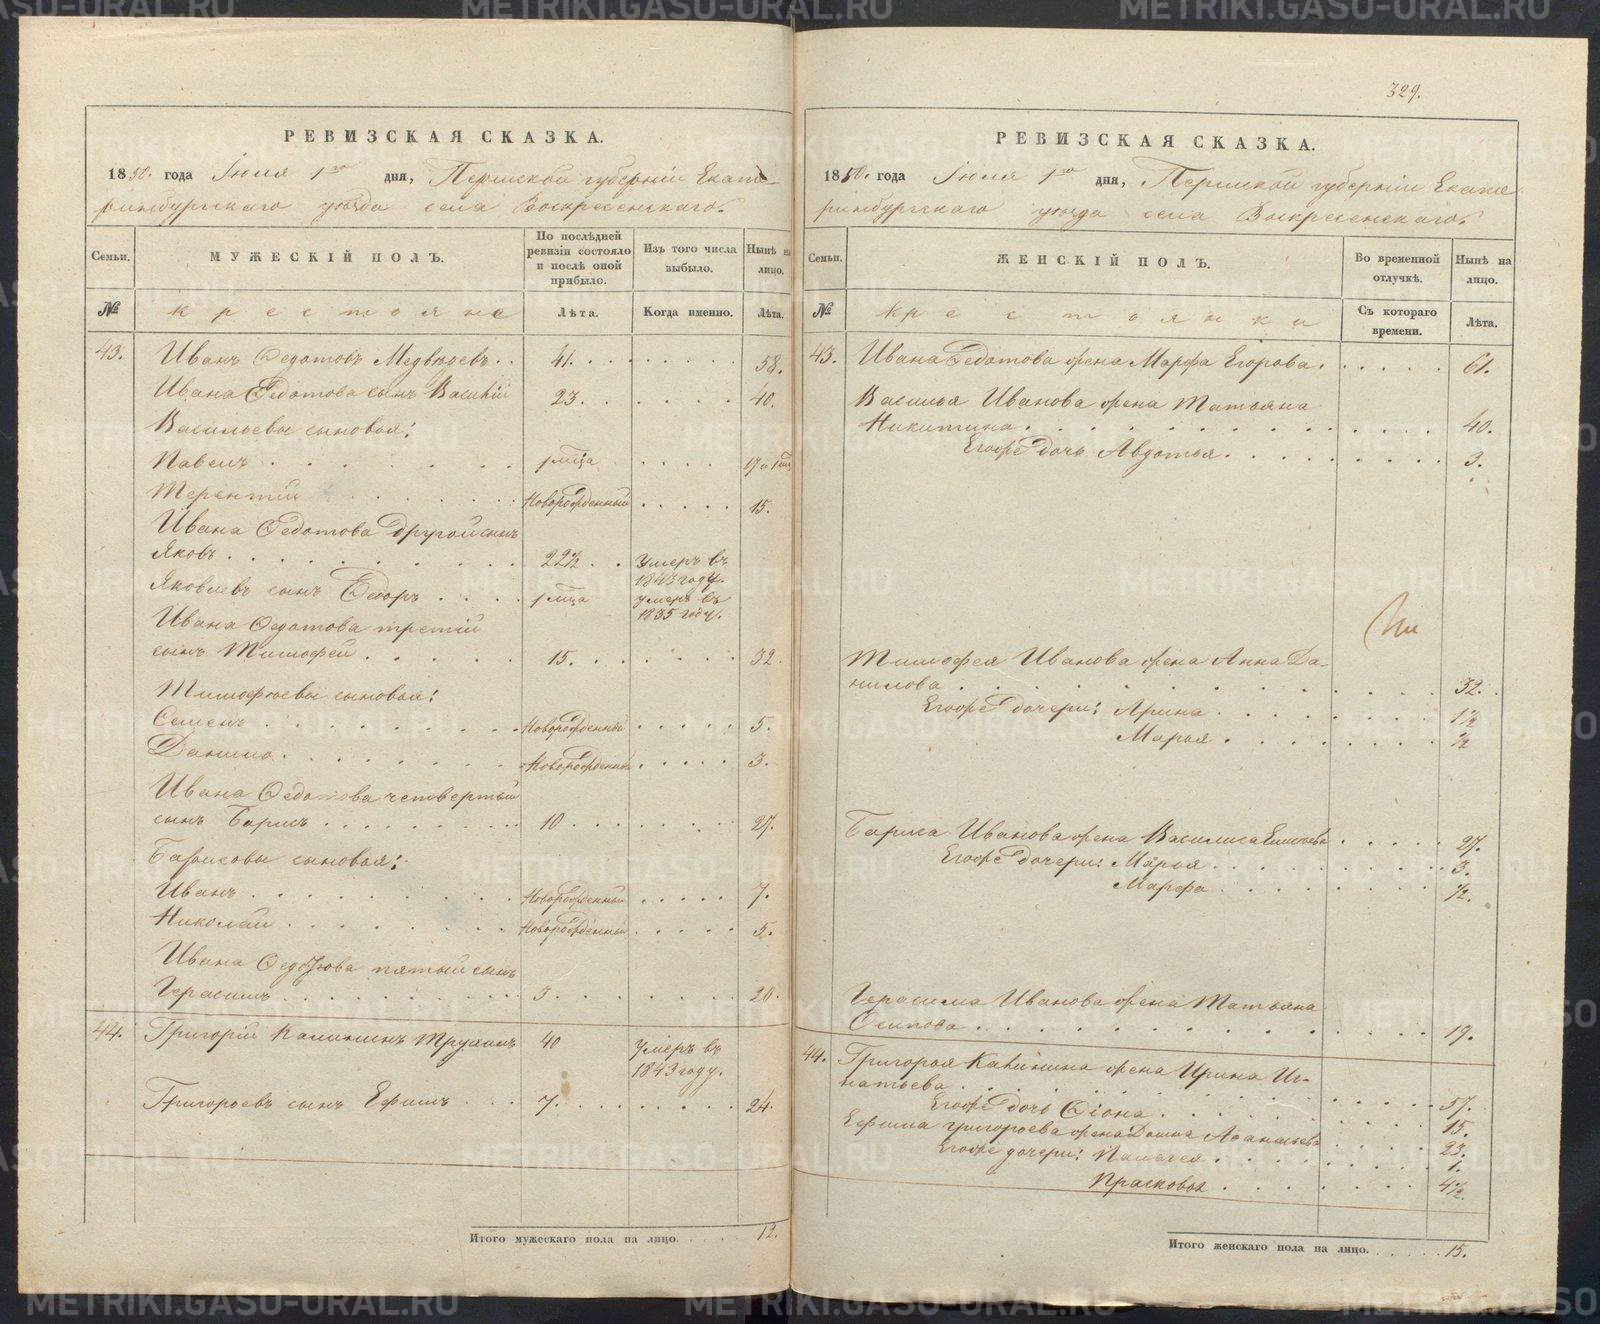 РЕВИЗСКАЯ СКАЗКА.
1850. года Іюня 1го дня, Пермской губерніи Екате-
ринбургскаго уѣзда села Воскресенскаго.
Семьи. МУЖЕСКІЙ ПОЛЪ. По послѣдней ревизіи состояло и послѣ оной прибыло. Изъ того числа выбыло. Нынѣ на лицо.
№ крестояне Лѣта. Когда именно. Лѣта.
43. Иванъ Федотовъ Медвѣдевъ 41. 58.
Ивана Федотова сынъ Василій 23. 40.
Васильевы сыновья:
Павелъ 1 мца 17 и 1 мц
Терентій Новорожденный 15.
Ивана Федотова другой сынъ
Яковъ 22½ Умеръ въ 1843 году.
Яковлевъ сынъ Ѳедоръ 1 мца умеръ въ 1835 году.
Ивана Федотова третій
сынъ Тимофей 15. 32.
Тимофеевы сыновья:
Семенъ Новорожденный 5.
Данило Новорожденный 3.
Ивана Федотова четвертый
сынъ Барисъ 10 27.
Барисовы сыновья:
Иванъ Новорожденный 7.
Николай Новорожденный 5.
Ивана Федотова пятый сынъ
Герасимъ 3. 20.
44. Григорій Калининъ 40 Умеръ въ 1843 году.
Григорьевъ сынъ Ефимъ 7. 24.
Итого мужескаго пола на лицо. 12.
329.
РЕВИЗСКАЯ СКАЗКА.
1850. года Іюня 1го дня, Пермской губерніи Екате
ринбургскаго уѣзда села Воскресенскаго.
Семьи. ЖЕНСКІЙ ПОЛЪ. Во временной отлучкѣ. Нынѣ на лицо.
№ крестоянки Съ котораго времени. Лѣта.
43. Ивана Федотова жена Марфа Егорова. 61.
Василья Иванова жена Татьяна
Никитина 40.
Егоже дочь Авдотья 3.
Тимофея Иванова жена Анна Да-
нилова 32.
Егоже дочери: Арина 1½
Марья ½
Бариса Иванова жена Василиса Елисеева 27.
Егоже дочери: Марья 3.
Марфа ½.
Герасима Иванова жена Татьяна
Осипова 19.
44. Григорья Калинина жена Ирина Иг-
натьева 57.
Егоже дочь Фіона 15.
Ефима Григорьева жена Домна Афанасьева 23.
Егоже дочери: Палагея 1.
Прасковья 4½.
Итого женскаго пола на лицо. 15.
METRIKI.GASO-URAL.RU